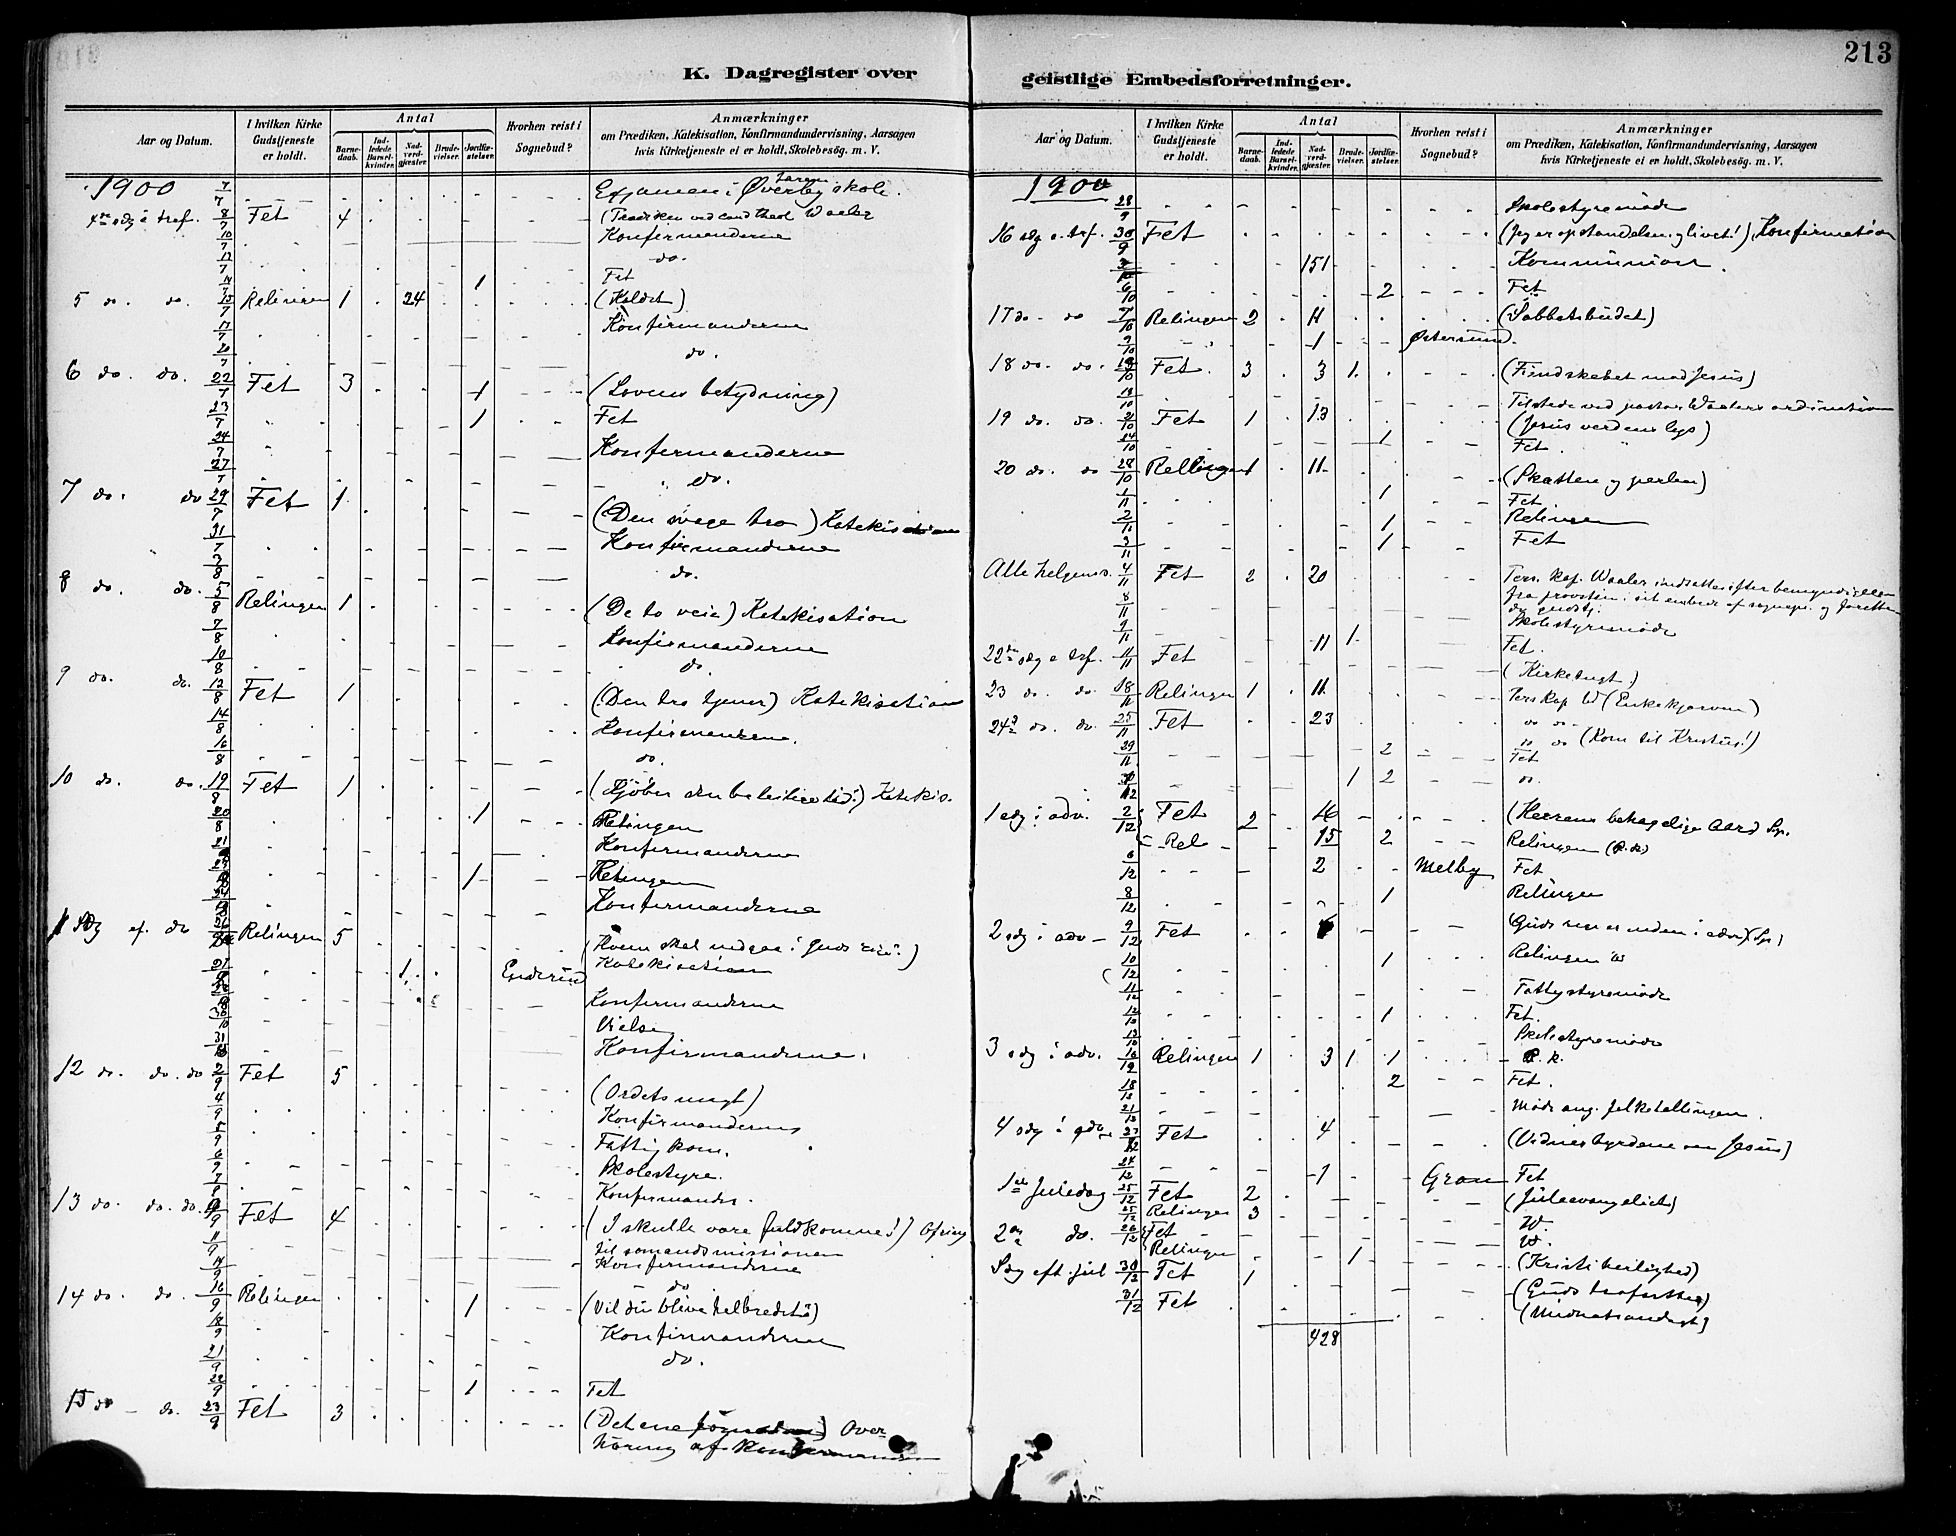 213
K. Dagregister over
geistlige Embedsforretninger.
Aar og Datum. I hvilken Kirke Gudstjeneste er holdt. Antal Barnedaab. Indledede Barselkvinder. Nadverdgjester. Brudevielser. Jordfæstelser. Hvorhen reist i Sognebud? Anmærkninger om Prædiken, Katekisation, Konfirmandundervisning, Aarsagen hvis Kirketjeneste ei er holdt, Skolebesög. m. V.
1900 7/7 Examen i Øverby skole.
8/7 Fet 4 (Prædiken ved cand theol Waaler
10/7 Konfirmanderne
13/7 do.
14/7 1 Fet
5 do. do. 15/7 Relingen 1 24 (Kaldet)
17/7 Konfirmanderne
20/7 do.
6 do. do. 22/7 Fet 3 1 (Lovens betydning)
23/7 1 Fet
24/7 Konfirmanderne
27/7 do.
7 do. do 29/7 Fet 1 (Den svage tro) Katekisation
31/7 Konfirmanderne
3/8 do.
8 do. do. 5/8 Relingen 1 (De to veie) Katekisation
7/8 Konfirmanderne
10/8 do.
9 do. do. 12/8 Fet 1 (Den tro tjener) Katekisation
14/8 Konfirmanderne.
16/8 do.
10 do. do. 19/8 Fet 1 (Kjöber den beleilige tid!) Katekis.
20/8 1 Relingen
21/8 Konfirmanderne
1 Relingen
Konfirmanderne
Relingen 5 (Hvem skal indgaa i Guds rige?)
1 Enderud Katekisation
Konfirmanderne
Vielse
Konfirmanderne.
12 do. do. do 2/9 Fet 5 (Ordets magt)
4/9 Konfirmanderne
5/9 Fattigkom.
6/9 Skolestyre.
Konfirmander.
13 do. do. do. 9/9 Fet 4 (I skulle være fuldkomne!) Ofring
11/9 til sømandsmissionen
14/9 Konfirmanderne
do
14 do. do. 16/9 Relingen 1 (Vil du blive helbredet?)
18/9 Konfirmanderne
21/9 do.
22/9 1 Fet
15 do do. 23/9 Fet 3 (Det ene fornødne) Over-
høring af konfirmanden
Aar og Datum. I hvilken Kirke Gudstjeneste er holdt. Antal Barnedaab. Indledede Barselkvinder. Nadverdgjester. Brudevielser. Jordfæstelser. Hvorhen reist i Sognebud? Anmærkninger om Prædiken, Katekisation, Konfirmandundervisning, Aarsagen hvis Kirketjeneste ei er holdt, Skolebesög. m. V.
1900
28/9 Skolestyremøde
16 søg e. tref. 30/9 Fet (Jeg er opstandelsen og livet!) Konfirmation
151 Kommunion.
6/10 2 Fet
17 do. do 7/10 Relingen 2 11 (Sabbatsbudet)
9/10 1 Østersund.
18 do. do. Fet. 3 3 1. (Fiendskabet mod Jesus)
Tilstede ved pastor Waalers ordination
19 do. do. 21/10 Fet 1 13 (Jesus verdens lys)
24/10 1 Fet.
20 do. do 28/10 Rellingen 1 11 (Skatten og perlen)
1/11 1 Fet
2/11 1 Relingen
3/11 1 Fet
Alle helgensd. 4/11 Fet 2 20 Pers. kap. Waaler indsattes efter bemyndigelse
fra provsten i sit embede af sognepr. og forrettede
da gudstj.
8/11 Skolestyremøde
9/11 11 1 Fet.
22de søg e. tref. 11/11 Fet (Kirketugt.)
23 do. do. 18/11 Relingen 1 11 Pers Kap W (Enkekjærven)
24de do. do. 25/11 Fet 23 do do (Kom til Kristus!)
29/11 2 Fet
1 2 do.
1 søg i adv. 2/12 Fet 2 16 (Herrens behagelige Aar)
Rel 15 2 Relingen (P. k)
6/12 2 Melby Fet
8/12 1 Relingen
2 søg i adv 9/12 Fet
10/12 1 Relingen W
11/12 Fattigstyremøde
12/12 1 Fet.
13/12 Skolestyremøde
3 søg i adv. 16/12 Relingen 1 3 1 1 P. k.
18/12 2 Fet.
21/12 Møde ang. folketællingen.
4 søg i adv 23/12 Fet 4 (Vidnesbyrdene om Jesus)
24/12 1 Gran Fet
1ste Juledag 25/12 Fet 2 (Juleevangeliet)
25/12 Relingen 3 W.
2den do. 26/12 Fet W.
Relingen 1 (Kristi herlighed)
Søg eft. jul 30/12 Fet 1 (Guds trofasthed)
31/12 Fet (Midnatsandagt)
428